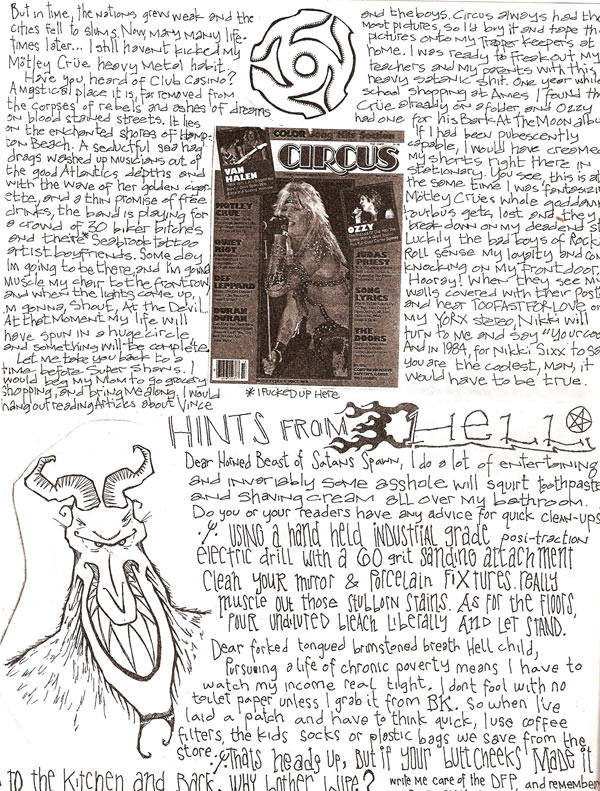 But in time, the nations grew weak and the
cities fell to slums. Now, many many life.
times later... I still havent kicked my
Mötley Crüe heavy Metal habit.
Have you, heard of Club Casino?
A magtical place it is, far removed from
the corpses of rebels and ashes of dreams
on blood stained streets. It lies
on the enchanted shores of Hamp-
ton Beach. A seductful sea hag
drags washed up musicians out of
the good Atlantics depths and
with the wave of her golden cigar-
ette, and a thin promise of free
drinks, the band is playing for
a crowd of 30 biker bitches
and there* Seabrook tattoo
artist boyfriends. Some day
Im going to be there, and I'm gona
muscle my chair to the front row
and when the lights come up, I
m gonna, Shout, At the Devil.
At that moment my life will
have spun in a huge circle
and something will be complete.
Let me take you back to a
time before Super Shaws. I
would beg my Mom to go grocery
shopping, and bring me along. I would
hang out reading Articles about Vince
and the boys. Circus always had the
most pictures, so Id buy it and tape the
pictures onto my Trapper Keepers at
home. I was ready to freak out my
teachers and my parents with this
heavy satanic shit. One year while
school shopping at Ames I found the
Crüe already on a folder, and Ozzy
had one for his Bark At The Moon albu
If I had been pubescently
capable, I would have creamed
my shorts right there in
stationary. You see, this is at
the same time I was fantasizin
Mötley Crües whole goddamn
tourbus gets lost and they
break down on my deadend st
Luckily the bad boys of Rock
Roll sense my loyalty and com
knocking on my front door.
Hooray! When they see my
walls covered with their post
and hear TOO FAST FOR LOVE on
my YORX stereo, Nikki will
turn to me and say "Your coo
And in 1984, for Nikki Sixx to sa
you are the coolest, man, it
would have to be true.
COLOR Song Hits Section
CIRCUS
VAN HALEN
MOTLEY CRUE
QUIET RIOT
DEF LEPPARD
DURAN DURAN
OZZY
JUDAS PRIEST
SONG LYRICS
THE DOORS
* I FUCKED UP HERE
HINTS FROM HELL
Dear Horned Beast of Satans Spawn, I do a lot of entertaining
and invariably some asshole will squirt toothpaste
and shaving cream all over my bathroom.
Do you or your readers have any advice for quick clean-ups
USING A hand held industrial grade posi-traction
electric drill with a 60 grit sanding attachment
Clean your mirror & porcelain fixtures. Really
muscle out those stubborn stains. As for the floors,
pour undiluted bleach liberally and let stand.
Dear forked tongued brimstoned breath Hell child,
Pursuing a life of chronic poverty means I have to
watch my income real tight. I dont fool with no
toilet paper unless I grab it from BK. So when I've
laid a patch and have to think quick, I use coffee
filters, the kids socks or plastic bags we save from the
store. Thats heads up, But if your buttcheeks made it
to the kitchen and back, why bother wipe? write me care of the DFP, and remember